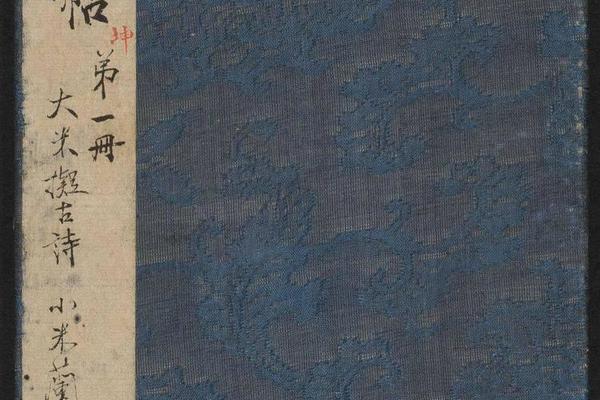 帖
坤
弟一冊
大米擬古詩 小米蘭